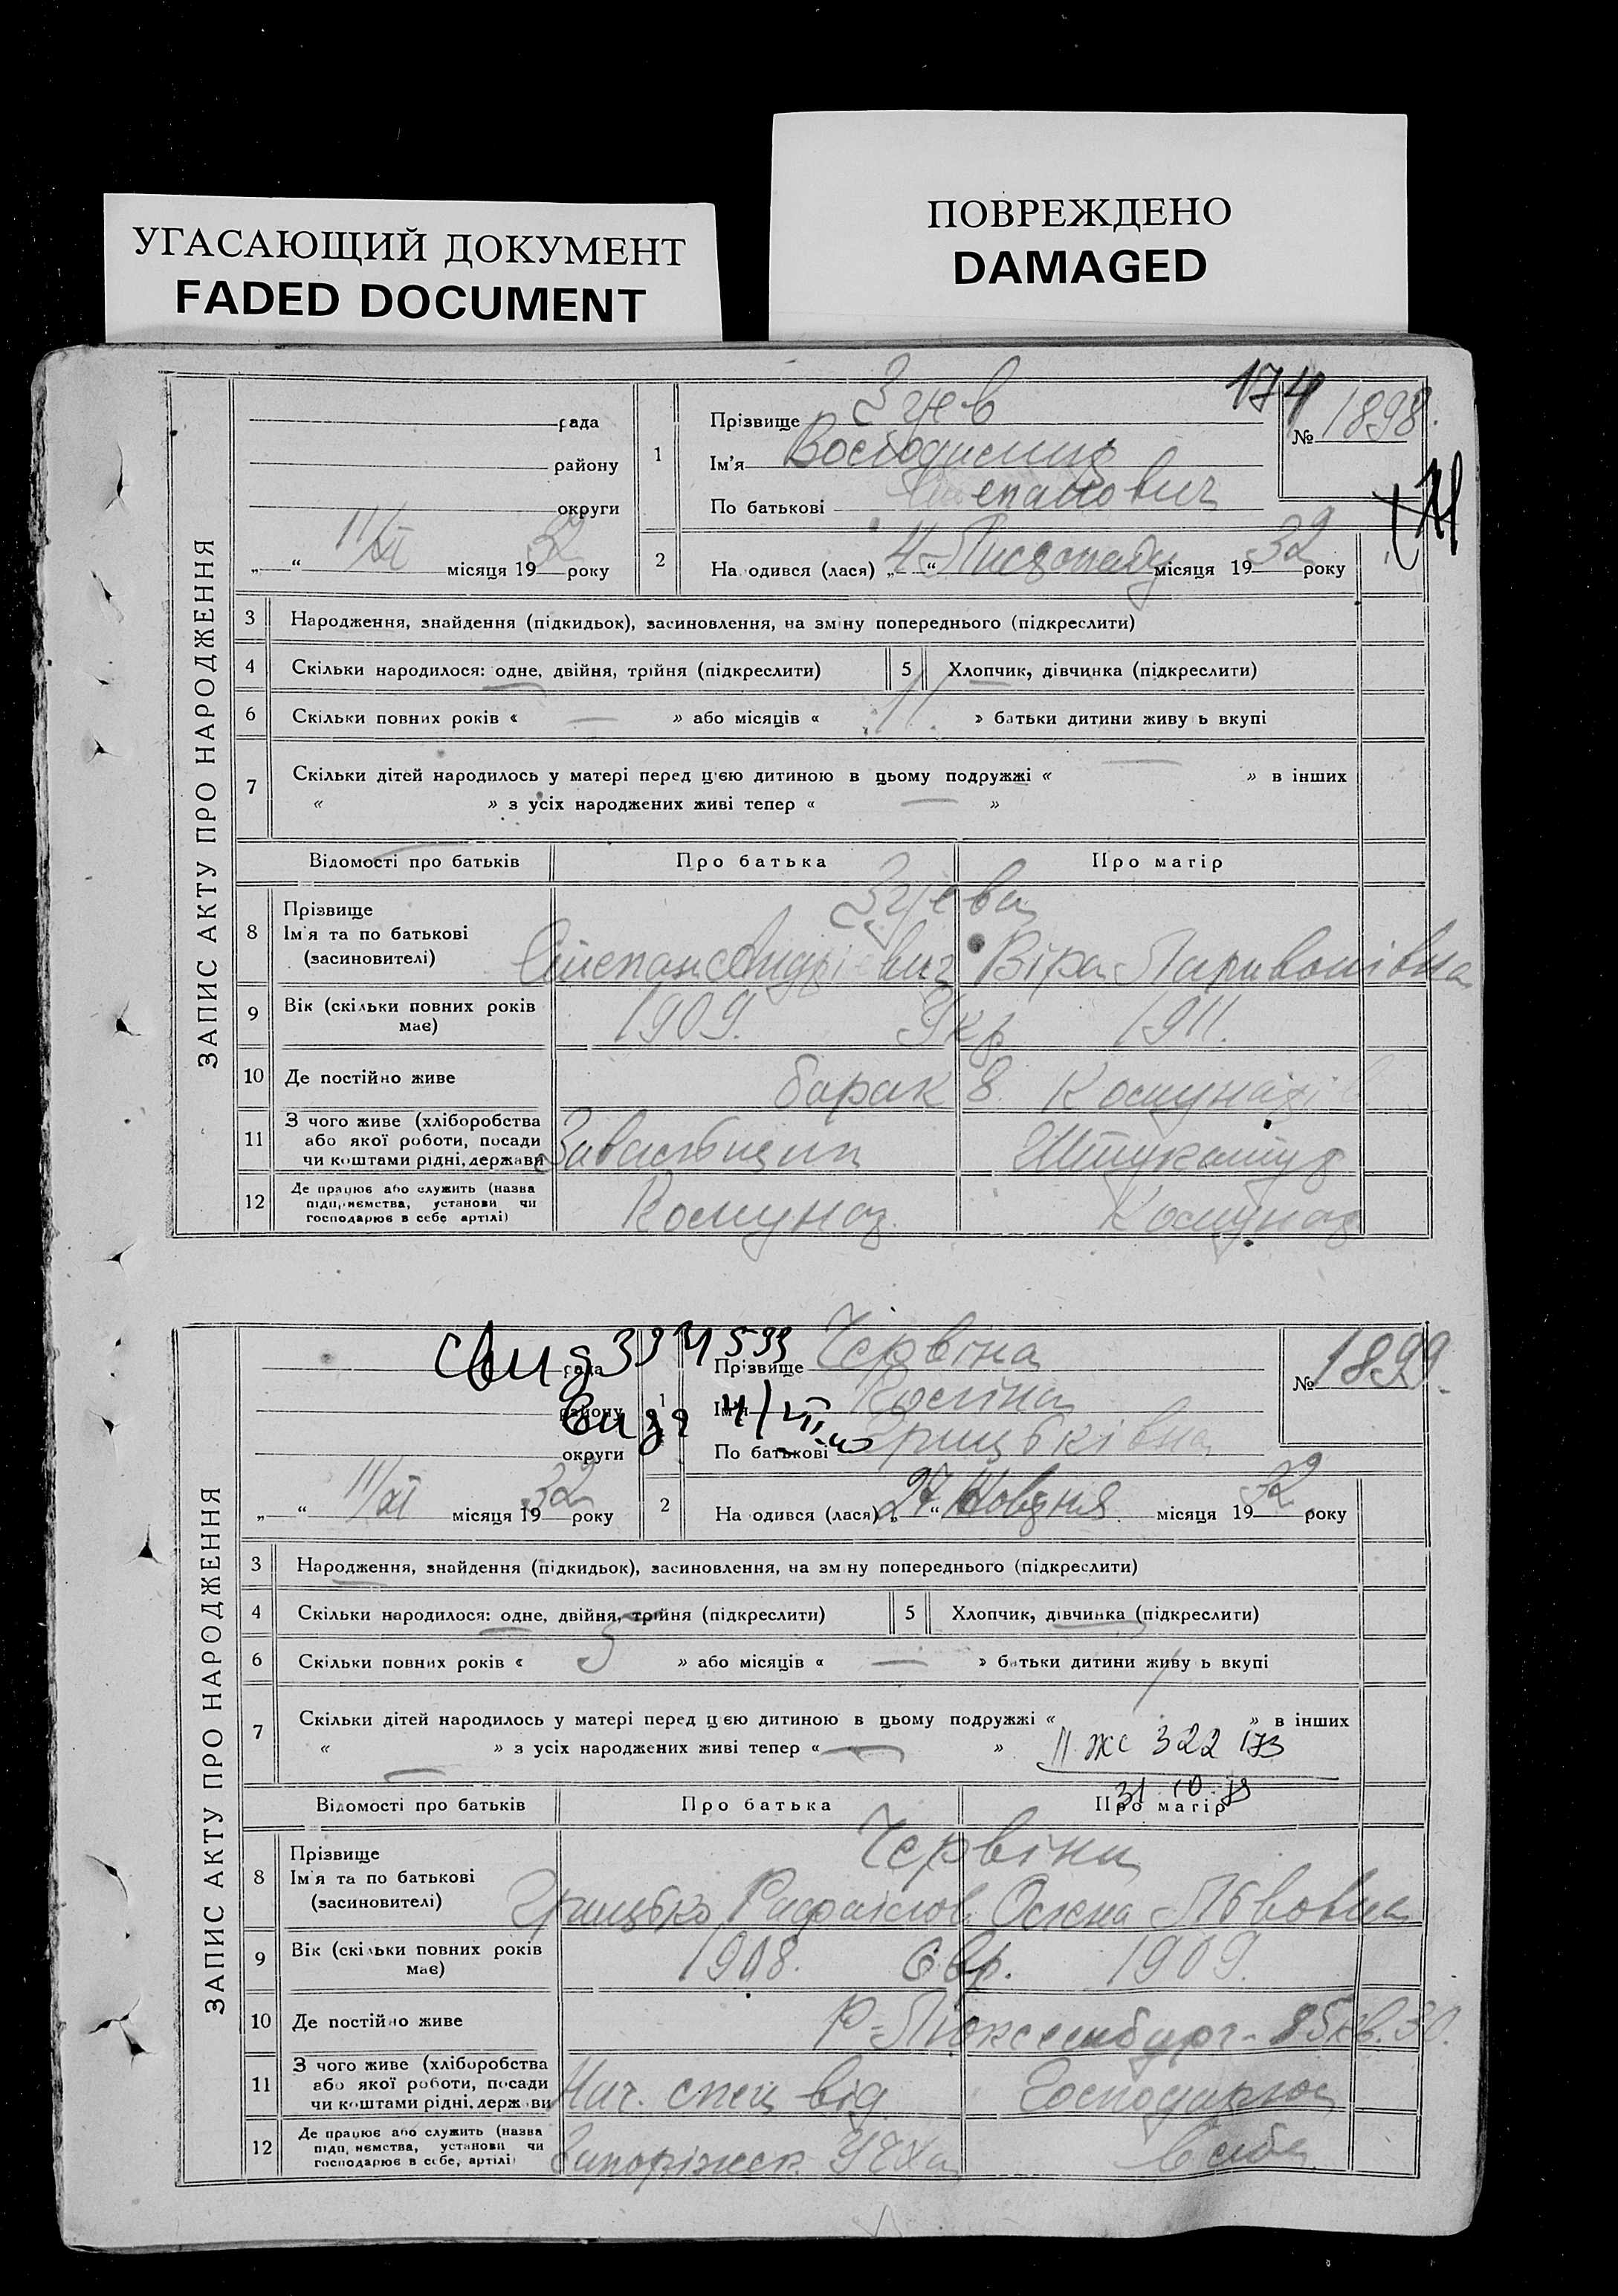 УГАСАЮЩИЙ ДОКУМЕНТ
FADED DOCUMENT
ПОВРЕЖДЕНО
DAMAGED
174
ЗАПИС АКТУ ПРО НАРОДЖЕННЯ
рада
району
округи
„ “ 11/XI місяця 1932 року
1
Прізвище Зуєв
Ім'я
По батькові Степанович
№ 1898.
2
На одився (лася) „4“ Листопаду місяця 1932 року
3 Народження, знайдення (підкидьок), засиновлення, на зміну попереднього (підкреслити)
4 Скільки народилося: одне, двійня, трійня (підкреслити)
5 Хлопчик, дівчинка (підкреслити)
6 Скільки повних років « — » або місяців « 11. » батьки дитини живу ь вкупі
7 Скільки дітей народилось у матері перед цією дитиною в цьому подружжі « — » в інших
« » з усіх народжених живі тепер « — »
Відомості про батьків
Про батька
Про матір
8 Прізвище
Ім'я та по батькові
(засиновителі)
Зуєва
Степан Андрієвич Віра Ларивонівна
9 Вік (скільки повних років має)
1909. Укр 1911.
10 Де постійно живе
барак 8.
11 З чого живе (хліборобства
або якої роботи, посади
чи коштами рідні, держави
Штукатур
12 Де працює або служить (назва
підприємства, установи чи
господарює в себе артілі)
Комунаг. Комунаг
ЗАПИС АКТУ ПРО НАРОДЖЕННЯ
рада
району
округи
„ “ 11/XI місяця 1932 року
1
Прізвище Червіна
Ім'я
По батькові Грицьківна
№ 1899.
2
На одився (лася) „27“ Жовтня місяця 1932 року
3 Народження, знайдення (підкидьок), засиновлення, на зміну попереднього (підкреслити)
4 Скільки народилося: одне, двійня, трійня (підкреслити)
5 Хлопчик, дівчинка (підкреслити)
6 Скільки повних років « 5 » або місяців « — » батьки дитини живу ь вкупі
7 Скільки дітей народилось у матері перед цією дитиною в цьому подружжі « » в інших
« » з усіх народжених живі тепер « — »
II ЖС 322 173
Відомості про батьків
Про батька
Про матір
8 Прізвище
Ім'я та по батькові
(засиновителі)
Червіни
Грицько Рафаілов. Олена Львовна
9 Вік (скільки повних років має)
1908. Євр. 1909.
10 Де постійно живе
Р-Люксембург-85 кв. 30.
11 З чого живе (хліборобства
або якої роботи, посади
чи коштами рідні, держави
Нач. спец від. Господарює
12 Де працює або служить (назва
підприємства, установи чи
господарює в себе, артілі)
Запоріжск. в себе